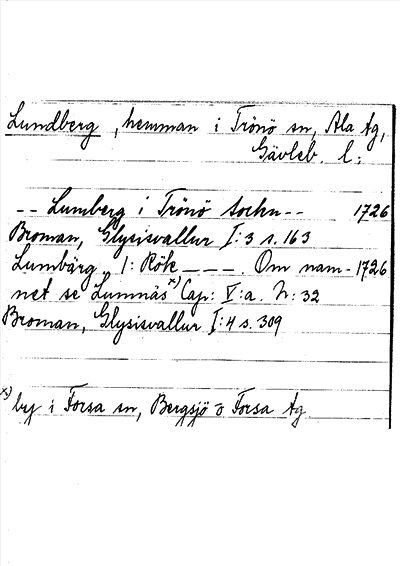 Lundberg, hemman i Trönö sn, Ala tg,
Gävleb. l:
-- Lumberg i Trönö sochn -- 1726
Broman, Glysisvallur I:3 s. 163
Lumbärg, 1: Rök _ _ _ . Om nam- 1726
net se Lumnäs x) Cap: V:a. N: 32
Broman, Glysisvallur I:4 s. 309
x) by i Forsa sn, Bergsjö o Forsa tg